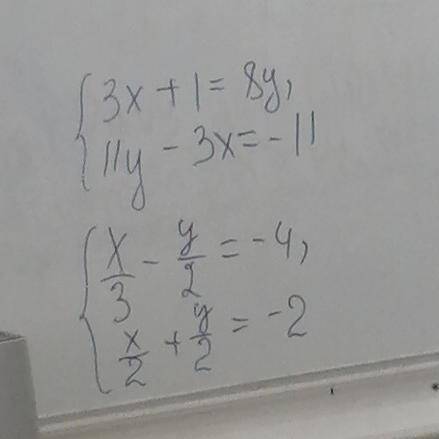 3x + 1 = 8y,
11y - 3x = -11
x/3 - y/2 = -4,
x/2 + y/2 = -2